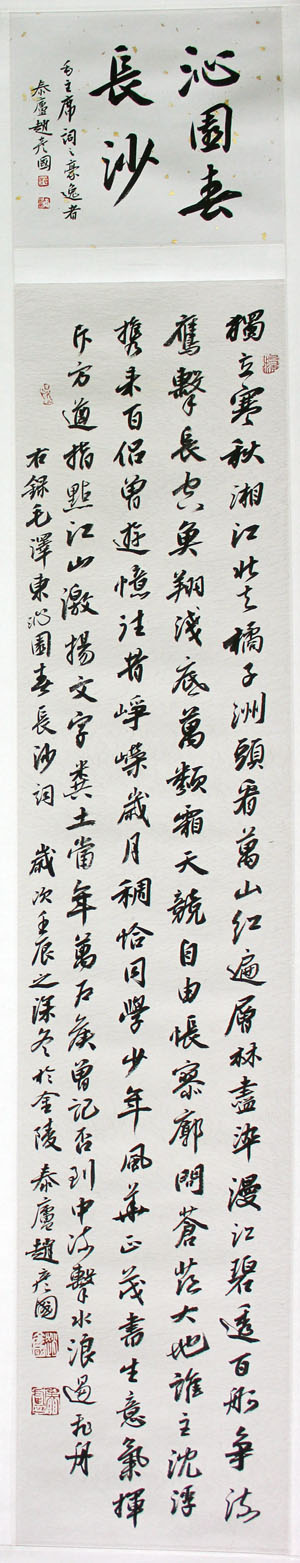 沁園春
長沙
毛主席詞之豪逸者
泰廬趙彥國
獨立寒秋湘江北去橘子洲頭看萬山紅遍層林盡染漫江碧透百舸爭流
鷹擊長空魚翔淺底萬類霜天競自由悵寥廓問蒼茫大地誰主沈浮
携來百侶曾遊憶往昔崢嶸歲月稠恰同學少年風華正茂書生意氣揮
斥方遒指點江山激揚文字糞土當年萬戶侯曾記否到中流擊水浪遏飛舟
右録毛澤東沁園春長沙詞 歲次壬辰之深冬於金陵泰廬趙彥國